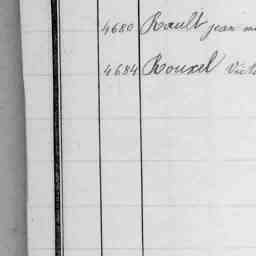 4680 Rault jean m
4684 Rouxel Vict